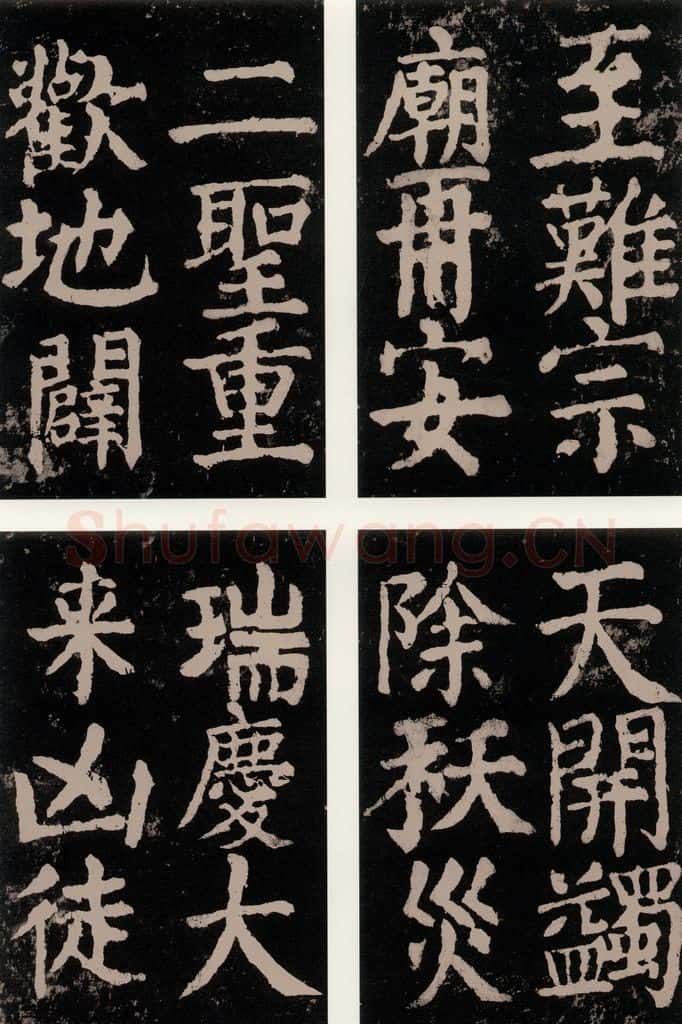 至難宗
廟再安
二聖重
歡地闢
天開蠲
除祅災
瑞慶大
来凶徒
Shufawang.CN